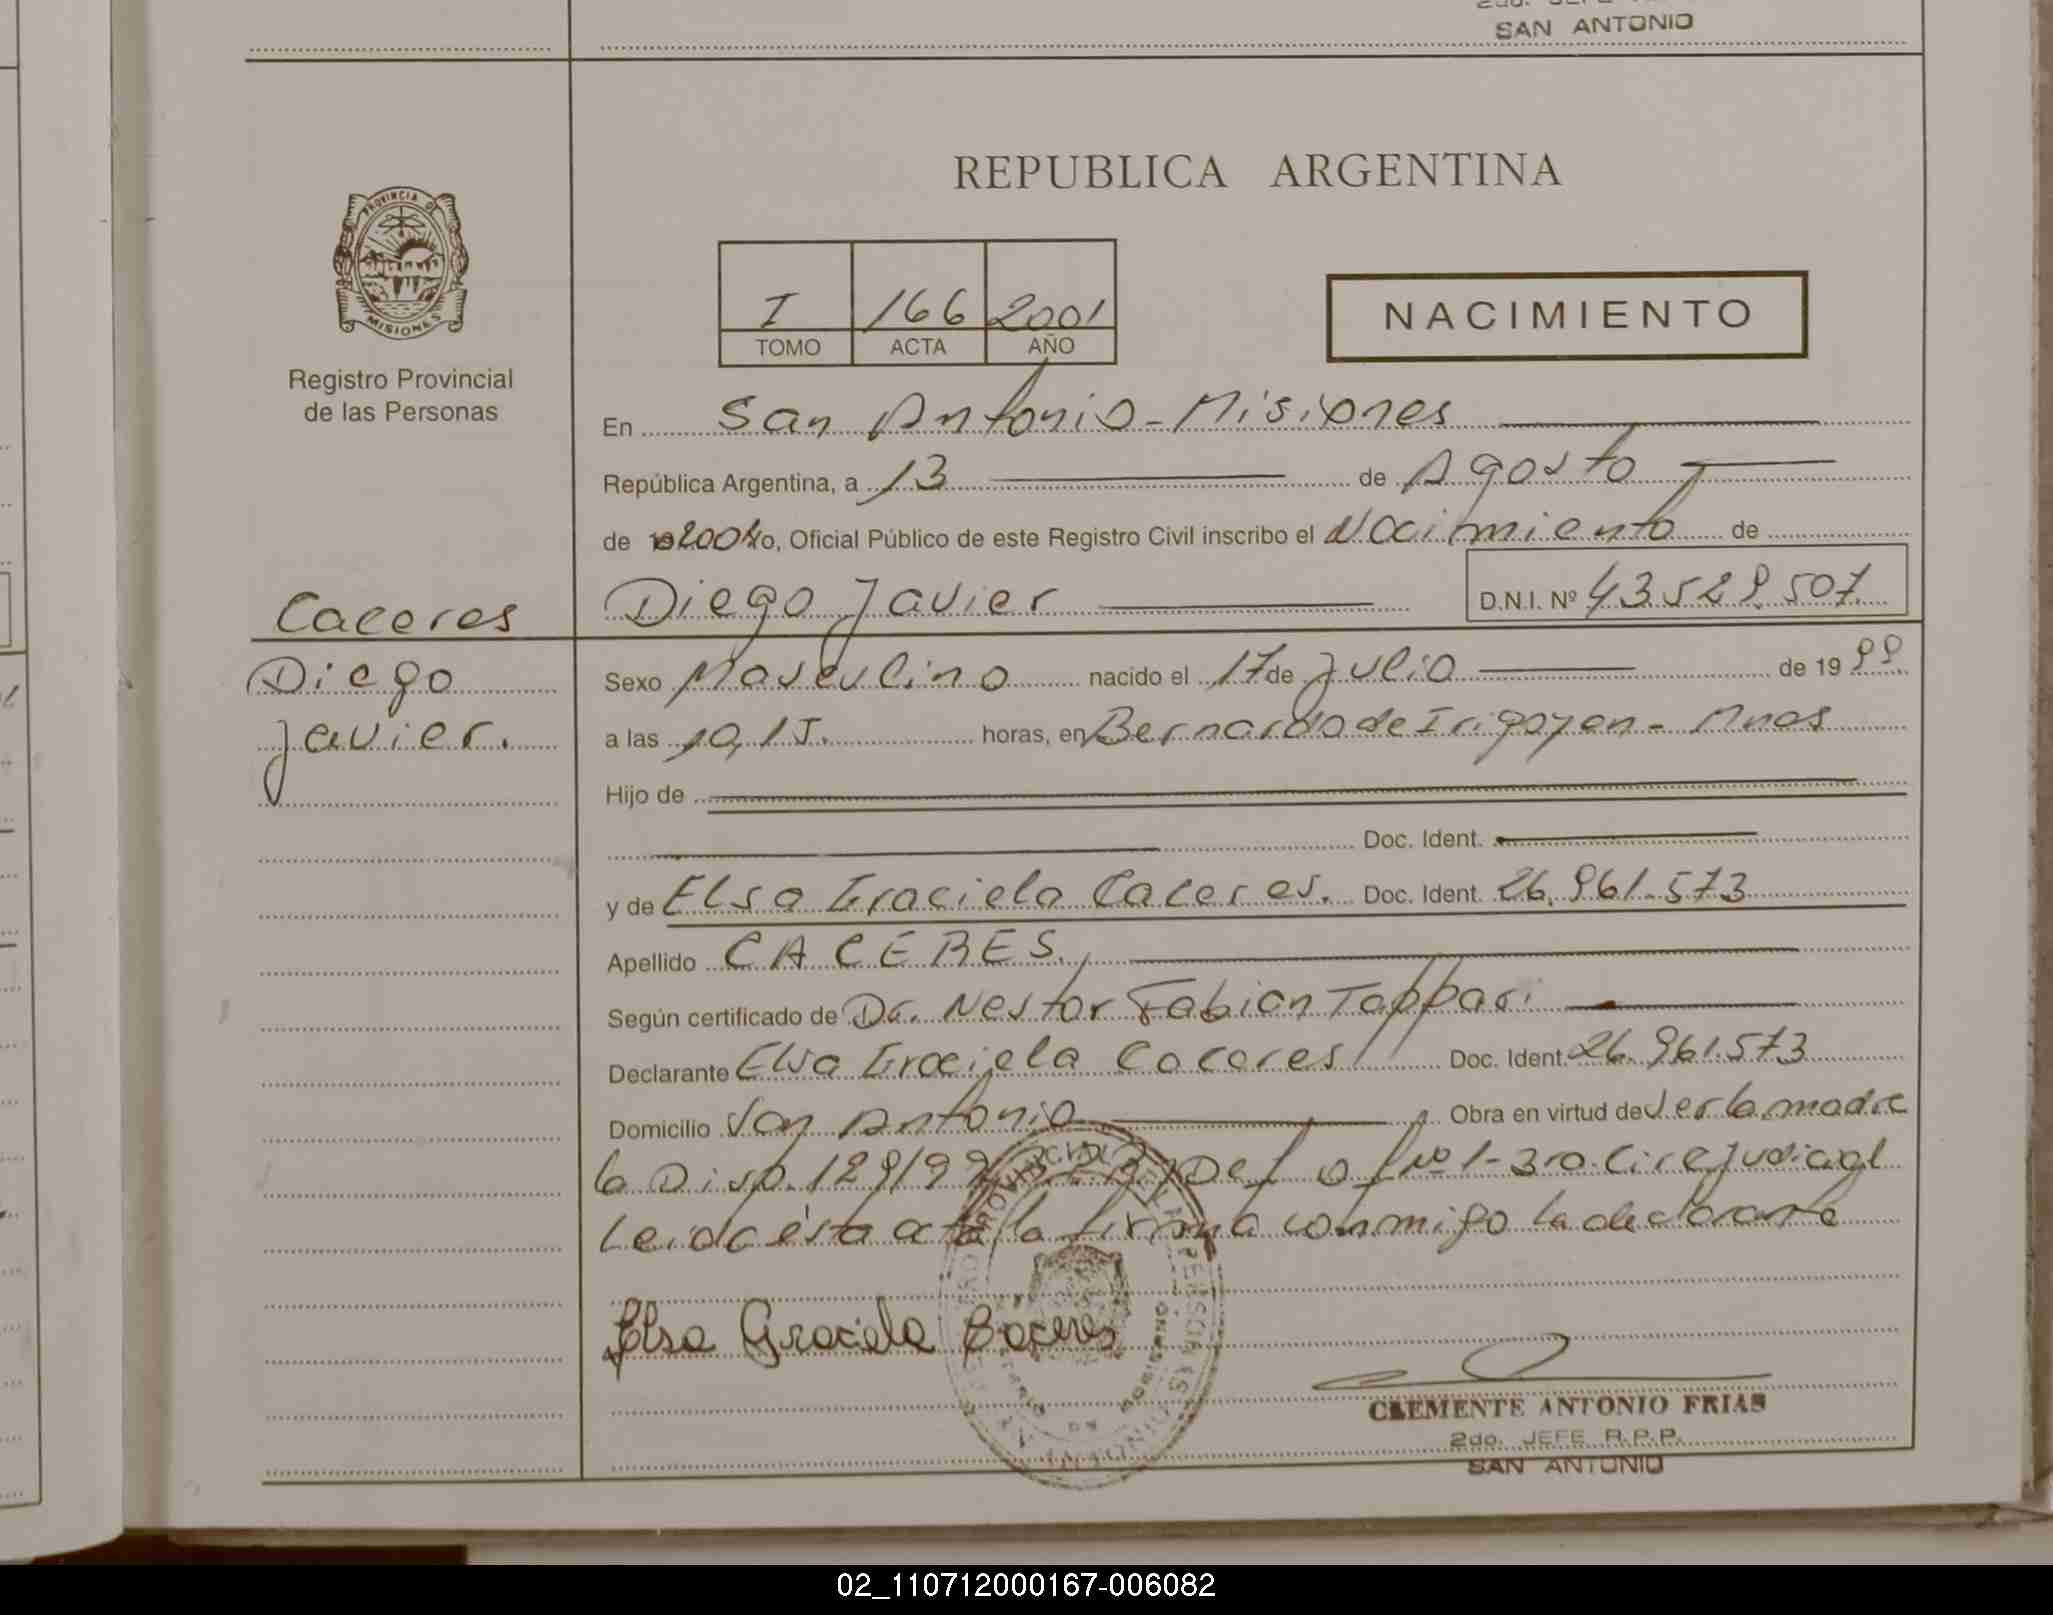 SAN ANTONIO
REPUBLICA ARGENTINA
PROVINCIA DE
MISIONES
Registro Provincial
de las Personas
I 166 2001
TOMO ACTA AÑO
NACIMIENTO
En San Antonio - Misiones
República Argentina, a 13 de Agosto
de 2001 yo, Oficial Público de este Registro Civil inscribo el Nacimiento de
Diego Javier D.N.I. Nº 43.529.507
Caceres
Diego
Javier.
Sexo Masculino nacido el 17 de Julio de 19 99
a las 10,15. horas, en Bernardo de Irigoyen - Mnes
Hijo de
Doc. Ident.
y de Elsa Graciela Caceres. Doc. Ident. 26.961.573
Apellido CACERES.
Según certificado de Dr. Nestor Fabian Tappari
Declarante Elsa Graciela Caceres Doc. Ident. 26.961.573
Domicilio San Antonio Obra en virtud de ser la madre
la Disp. 129/99 Def of Nº 1 - 3ra. Circ Judicial
Leida ésta acta la firma conmigo la declarante
Elsa Graciela Caceres
CLEMENTE ANTONIO FRIAS
2do. JEFE R.P.P.
SAN ANTONIO
02_110712000167-006082